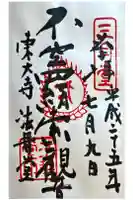 平成二十五年
七月九日
不空羂索観音
東大寺 法華堂